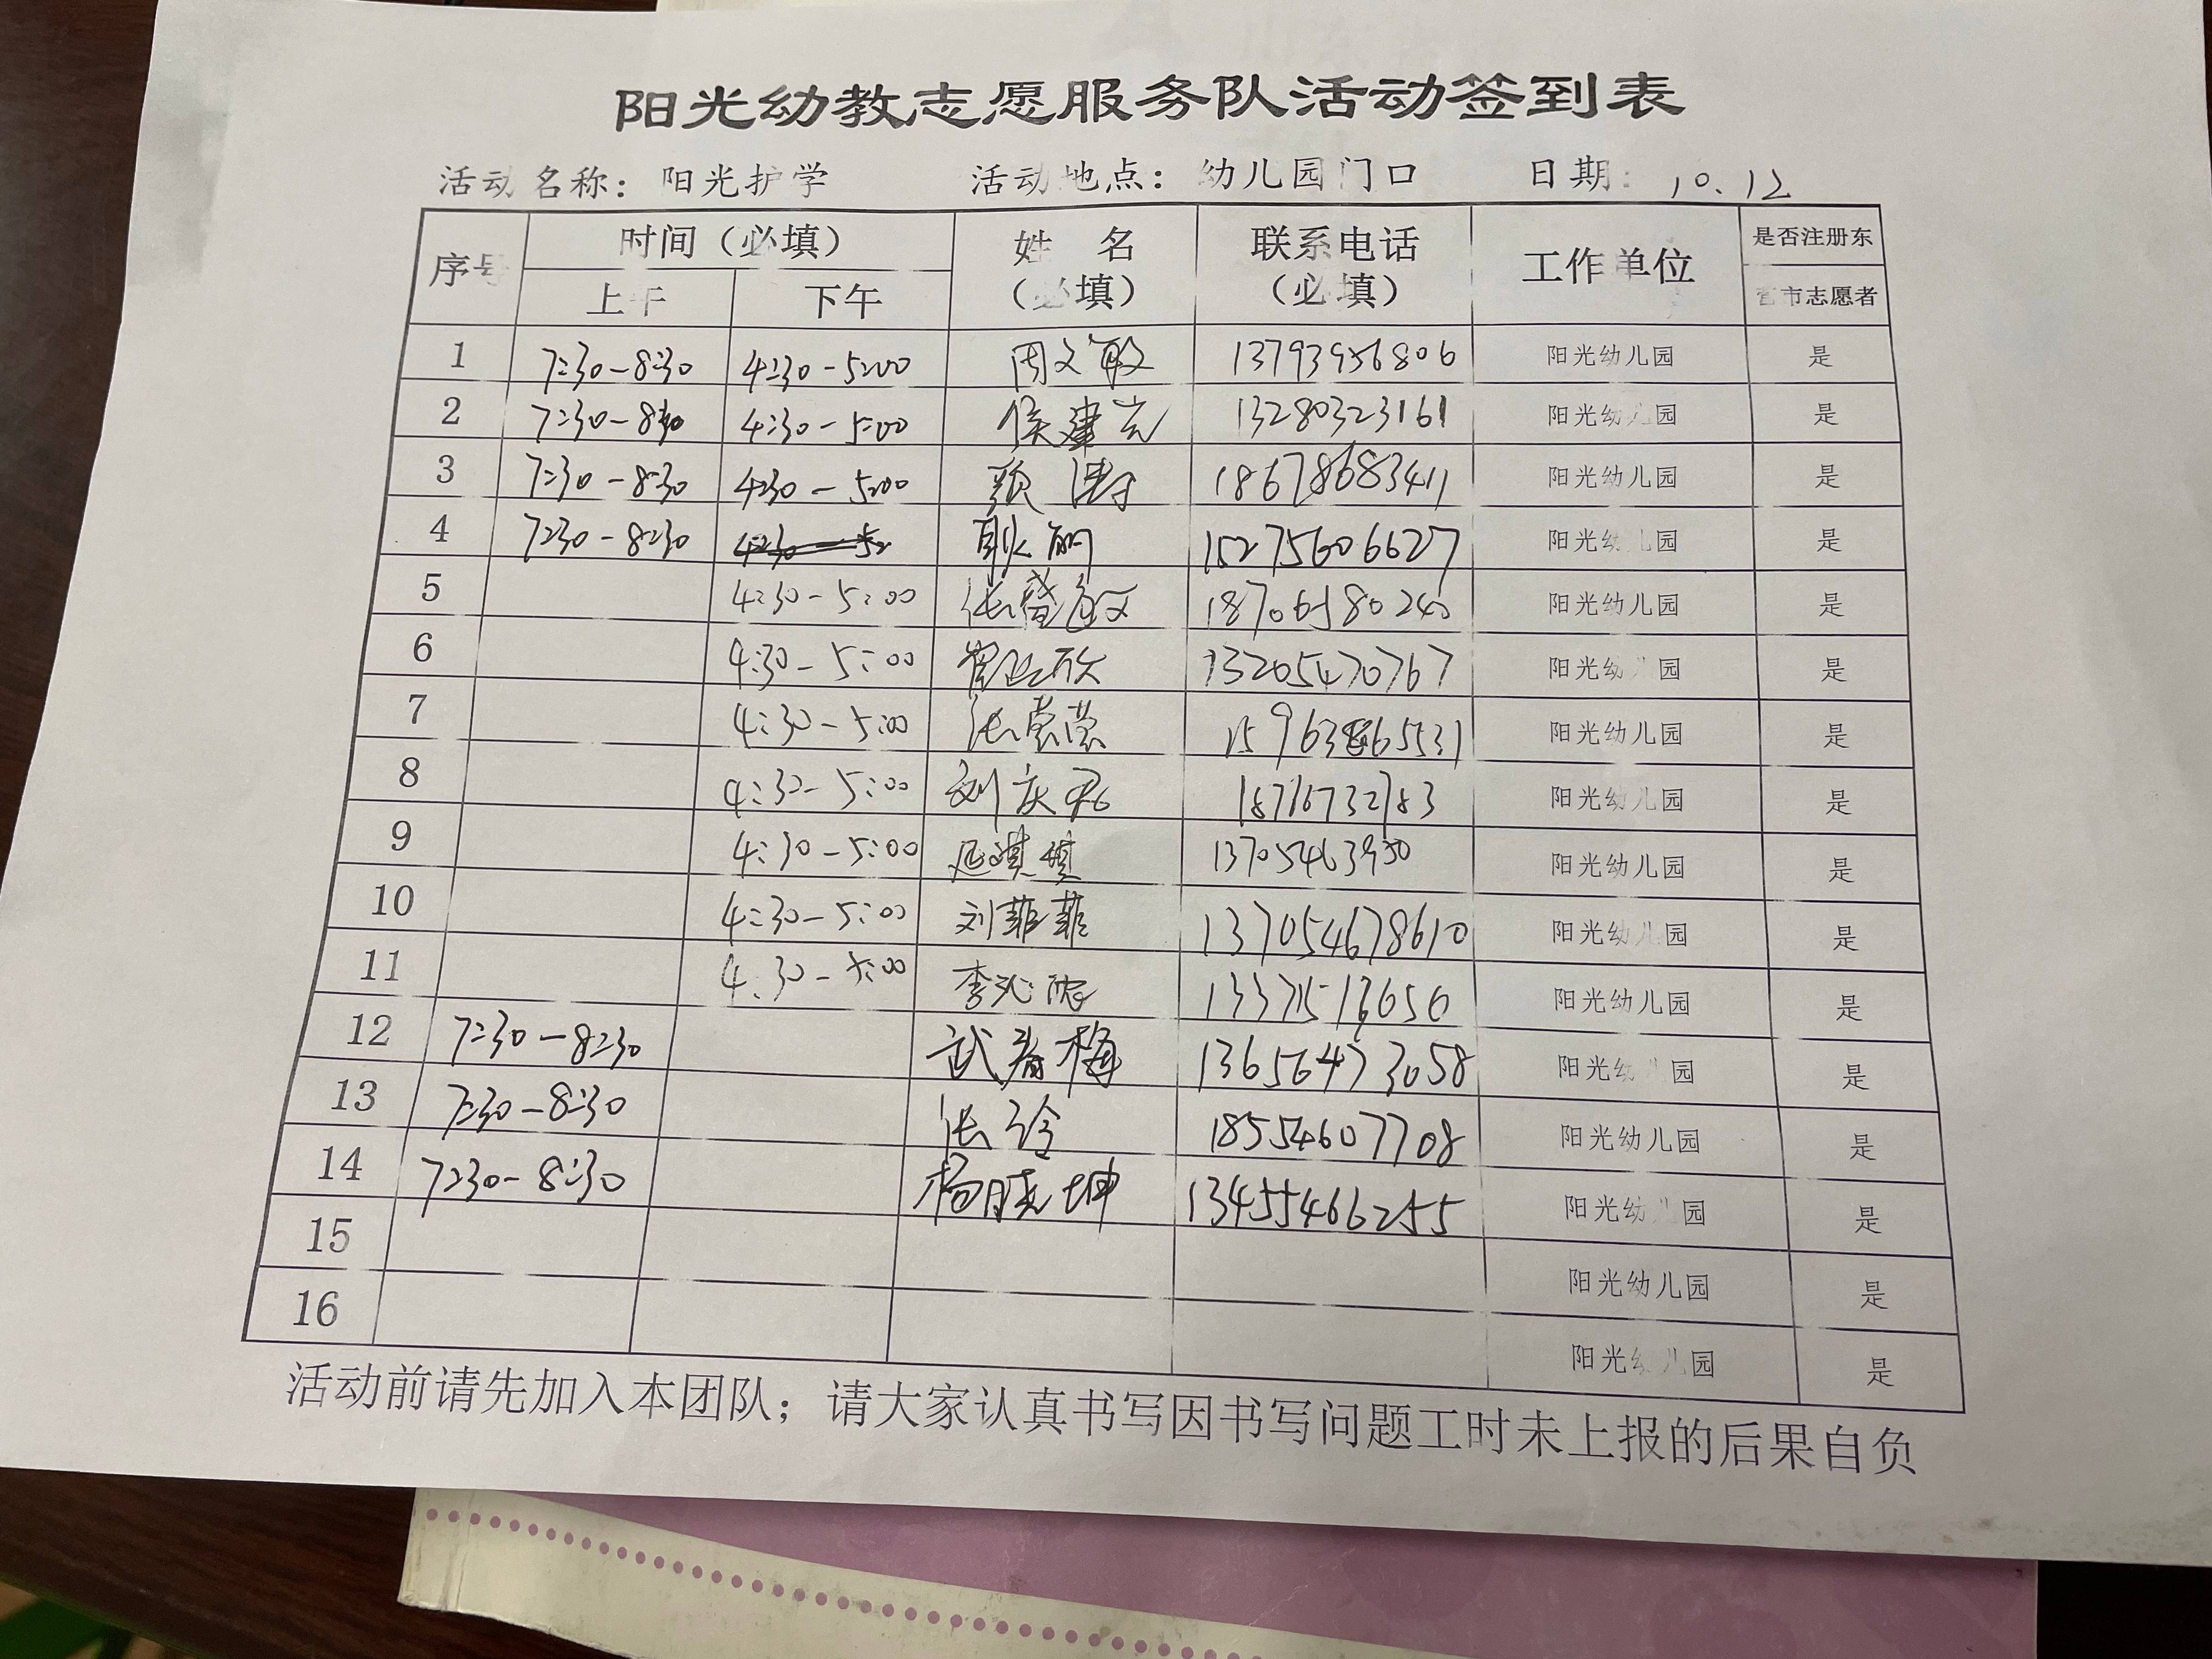 阳光幼教志愿服务队活动签到表
活动名称：阳光护学 活动地点：幼儿园门口 日期：10.12
序号 时间（必填） 姓 名（必填） 联系电话（必填） 工作单位 是否注册东营市志愿者
上午 下午
1 7:30-8:30 4:30-5:00 周文敏 13793956806 阳光幼儿园 是
2 7:30-8:30 4:30-5:00 侯建云 13280323161 阳光幼儿园 是
3 7:30-8:30 4:30-5:00 18678683411 阳光幼儿园 是
4 7:30-8:30 耿丽 15275606627 阳光幼儿园 是
5 4:30-5:00 18706580240 阳光幼儿园 是
6 4:30-5:00 13205470767 阳光幼儿园 是
7 4:30-5:00 张莹莹 阳光幼儿园 是
8 4:30-5:00 刘庆 阳光幼儿园 是
9 4:30-5:00 13705463950 阳光幼儿园 是
10 4:30-5:00 刘菲菲 137054678610 阳光幼儿园 是
11 4:30-5:00 李沁 13371513656 阳光幼儿园 是
12 7:30-8:30 武春梅 13656473058 阳光幼儿园 是
13 7:30-8:30 张玲 18554607708 阳光幼儿园 是
14 7:30-8:30 杨晓坤 13455466255 阳光幼儿园 是
15 阳光幼儿园 是
16 阳光幼儿园 是
活动前请先加入本团队；请大家认真书写因书写问题工时未上报的后果自负